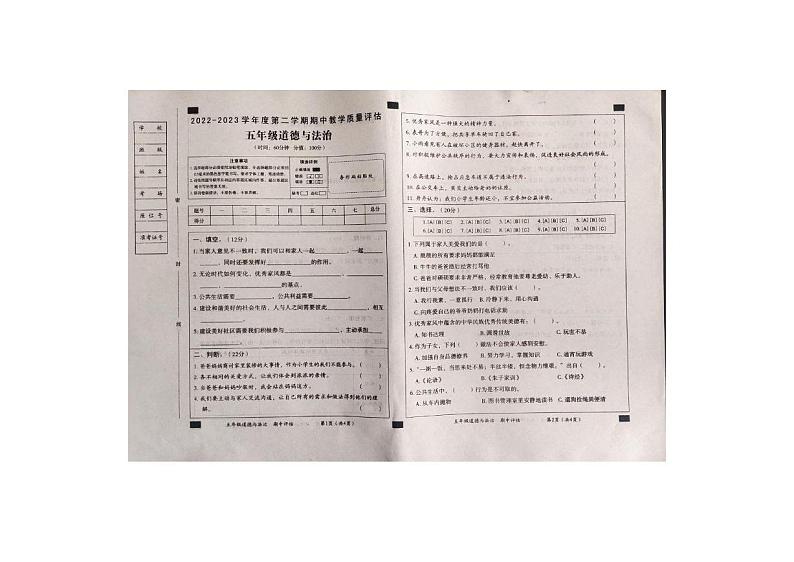 学 校
班 级
姓 名
考 场
座 位 号
准考证号
密
封
线
2022-2023学年度第二学期期中教学质量评估
五年级道德与法治
（时间：60分钟 分值：100分）
注意事项
填涂样例
正确填涂
错误填涂
缺考
条形码粘贴处
题号 一 二 三 四 五 六 七 总分
得分
一、填空。（12分）
1.当家人意见不一致时，我们可以和家人一起________、一起
________，同时还要发挥好________的作用。
2.无论时代如何变化，优秀家风都是________、________
________的基点。
3.公共生活需要________，公共利益需要________。
4.建设和谐美好的社会生活，人与人之间需要彼此________、相互
________。
5.建设美好社区需要我们积极参与________，主动承担________
二、判断。（22分）
1.爸爸妈妈商讨家里装修的大事情，作为小学生的我们不能参与。（ ）
2.各不相同的关爱方式，让我们体会到浓浓的亲情。（ ）
3.当爸爸和妈妈吵架时，我会站在妈妈这方。（ ）
4.我们要主动与家人交流沟通，让自己所有的需求和做法得到他们的理
解。（ ）
五年级道德与法治 期中评估 第1页（共4页）
5.优秀家风是一种强大的精神力量。（ ）
6.表弟为了方便，把共享单车骑回了自己家。（ ）
7.小雨看见有人在破坏小区的健身器材，赶快离开了。（ ）
8.对积极维护公共秩序的行为，要大力宣传和表扬，促进良好社会风尚的形成。
（ ）
9.在高速路上，抛物品是车道不属于高空抛物。（ ）
10.在公交车上，莫莫主动给奶奶让座。（ ）
11.舟舟认为：我们小学生年龄还小，不能参加公益活动。（ ）
三、选择。（20分）
1.[A][B][C] 2.[A][B][C] 3.[A][B][C] 4.[A][B][C] 5.[A][B][C]
6.[A][B][C] 7.[A][B][C] 8.[A][B][C] 9.[A][B][C] 10.[A][B][C]
1.下列属于家人关爱我们的是（ ）。
A.棚棚的所有要求妈妈都能满足
B.牛牛的爸爸酒后经常打骂他
C.爸爸对硕硕要求非常严格，经常教育他要尊老爱幼、乐于助人。
2.当我们与父母想法不一致时，我们应该（ ）。
A.我行我素，一意孤行 B.冷静下来，用心沟通
C.向疼爱自己的爷爷奶奶打电话求助
3.优秀家风中蕴含的中华民族优秀传统美德有：（ ）。
A.知书达理 B.圆滑世故 C.玩世不恭
4.作为子女，下列（ ）做法不会使家人感到安慰。
A.加强自身品德修养 B.努力学习，掌握知识 C.通宵玩游戏
5.“一粥一饭，当思来处不易；半丝半缕，恒念物力维艰。”出自（ ）
A.《论语》 B.《朱子家训》 C.《诗经》
6.公共生活中，（ ）行为是不可取的。
A.从车内抛物 B.图书管理室里安静地读书 C.遛狗拴绳捡便清
五年级道德与法治 期中评估 第2页（共4页）